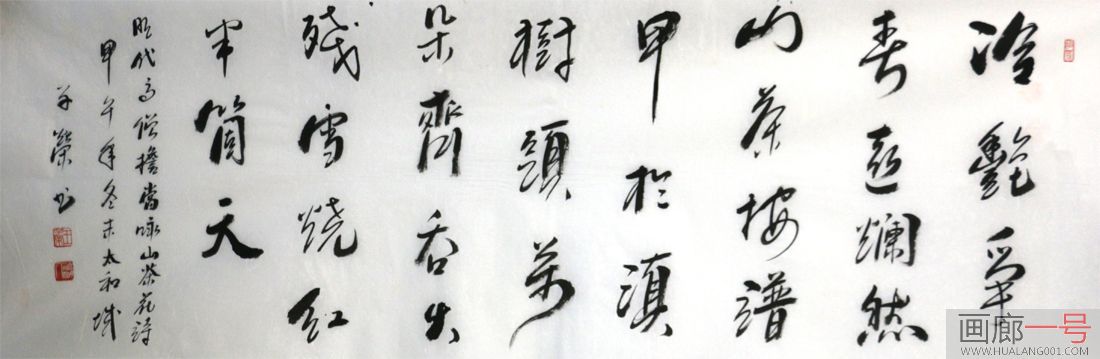 冷艷爭
春喜爛然
山茶按譜
甲於滇
樹頭萬
朵齊吞火
殘雪燒紅
半箇天
明代高僧擔當咏山茶花詩
甲午年冬末太和城
榮书
画廊一号
WWW.HUALANG001.COM